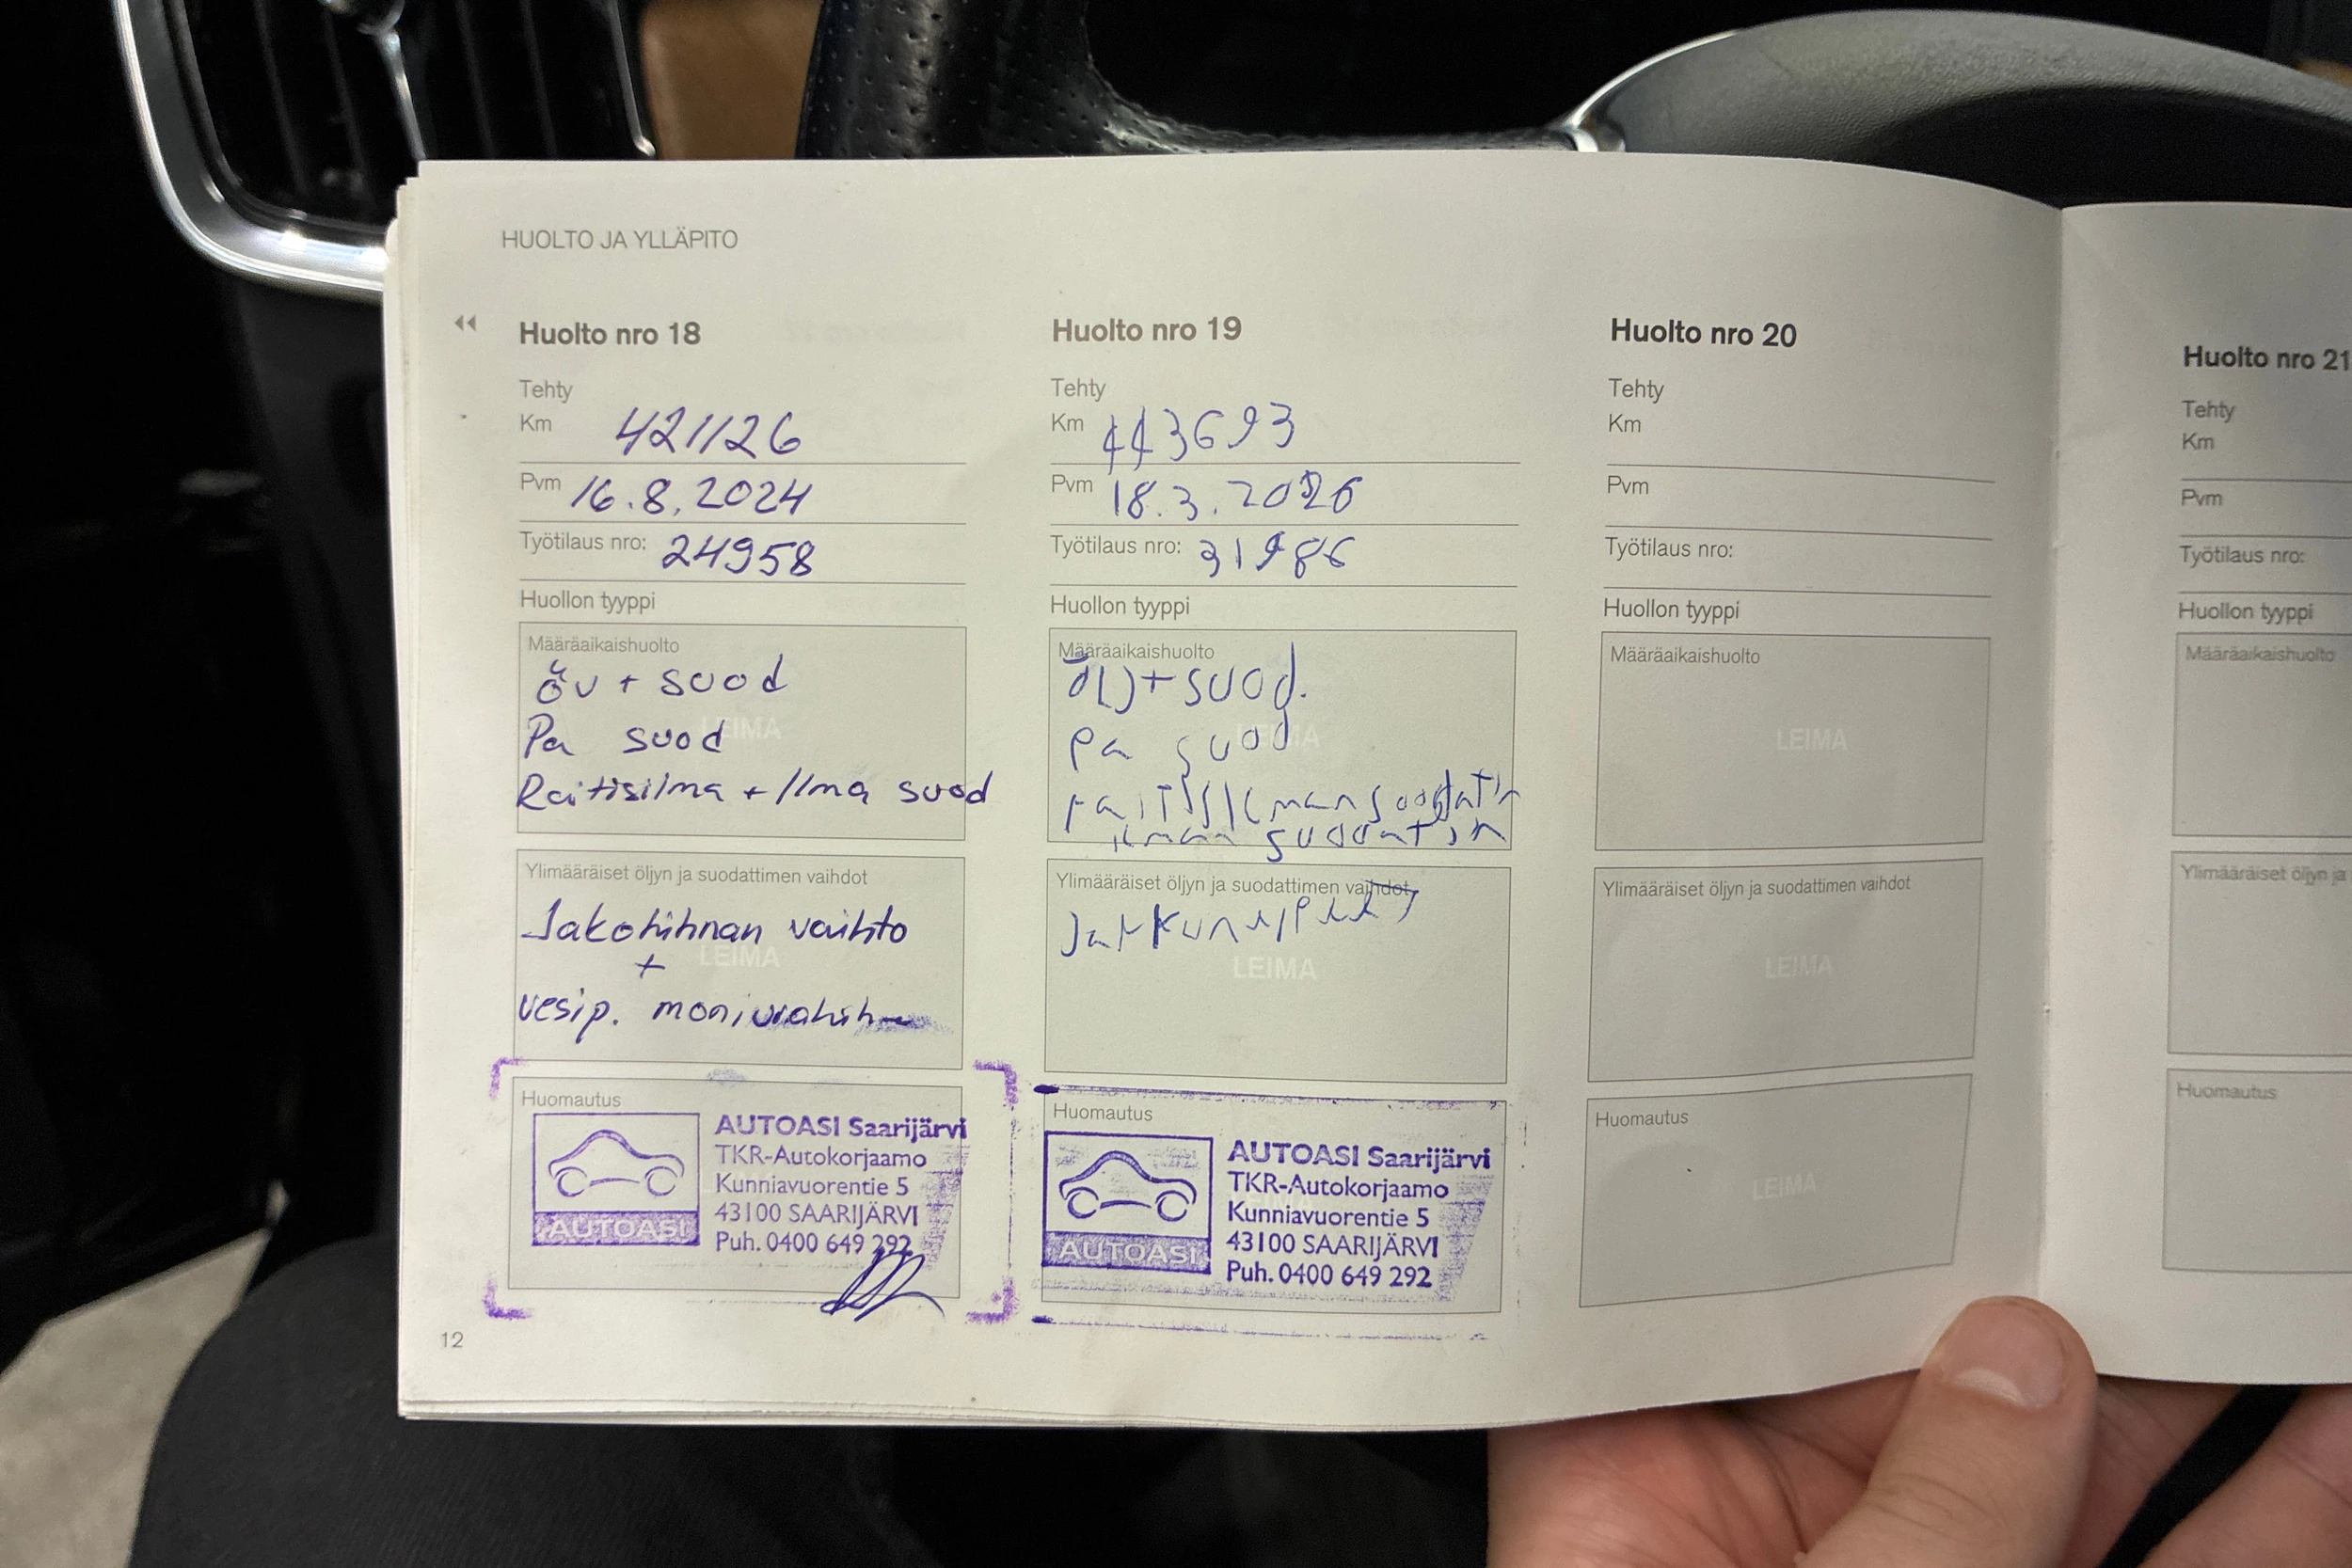 HUOLTO JA YLLÄPITO
Huolto nro 18
Tehty
Km 421126
Pvm 16.8.2024
Työtilaus nro: 24958
Huollon tyyppi
Määräaikaishuolto
öv + suod
LEIMA
Pa suod
Raitisilma + Ilma suod
Ylimääräiset öljyn ja suodattimen vaihdot
Jakohihnan vaihto
LEIMA
+
vesip. moniurahih
Huomautus
AUTOASI Saarijärvi
TKR-Autokorjaamo
Kunniavuorentie 5
43100 SAARIJÄRVI
Puh. 0400 649 292
AUTOASI
12
Huolto nro 19
Tehty
Km 443693
Pvm 18.3.2026
Työtilaus nro: 31986
Huollon tyyppi
Määräaikaishuolto
öljy + suod.
LEIMA
pa suod
raitisilmansuodatin
ilman suodatin
Ylimääräiset öljyn ja suodattimen vaihdot
LEIMA
Huomautus
AUTOASI Saarijärvi
TKR-Autokorjaamo
Kunniavuorentie 5
43100 SAARIJÄRVI
Puh. 0400 649 292
AUTOASI
Huolto nro 20
Tehty
Km
Pvm
Työtilaus nro:
Huollon tyyppi
Määräaikaishuolto
LEIMA
Ylimääräiset öljyn ja suodattimen vaihdot
LEIMA
Huomautus
LEIMA
Huolto nro 21
Tehty
Km
Pvm
Työtilaus nro:
Huollon tyyppi
Määräaikaishuolto
Ylimääräiset öljyn ja
Huomautus